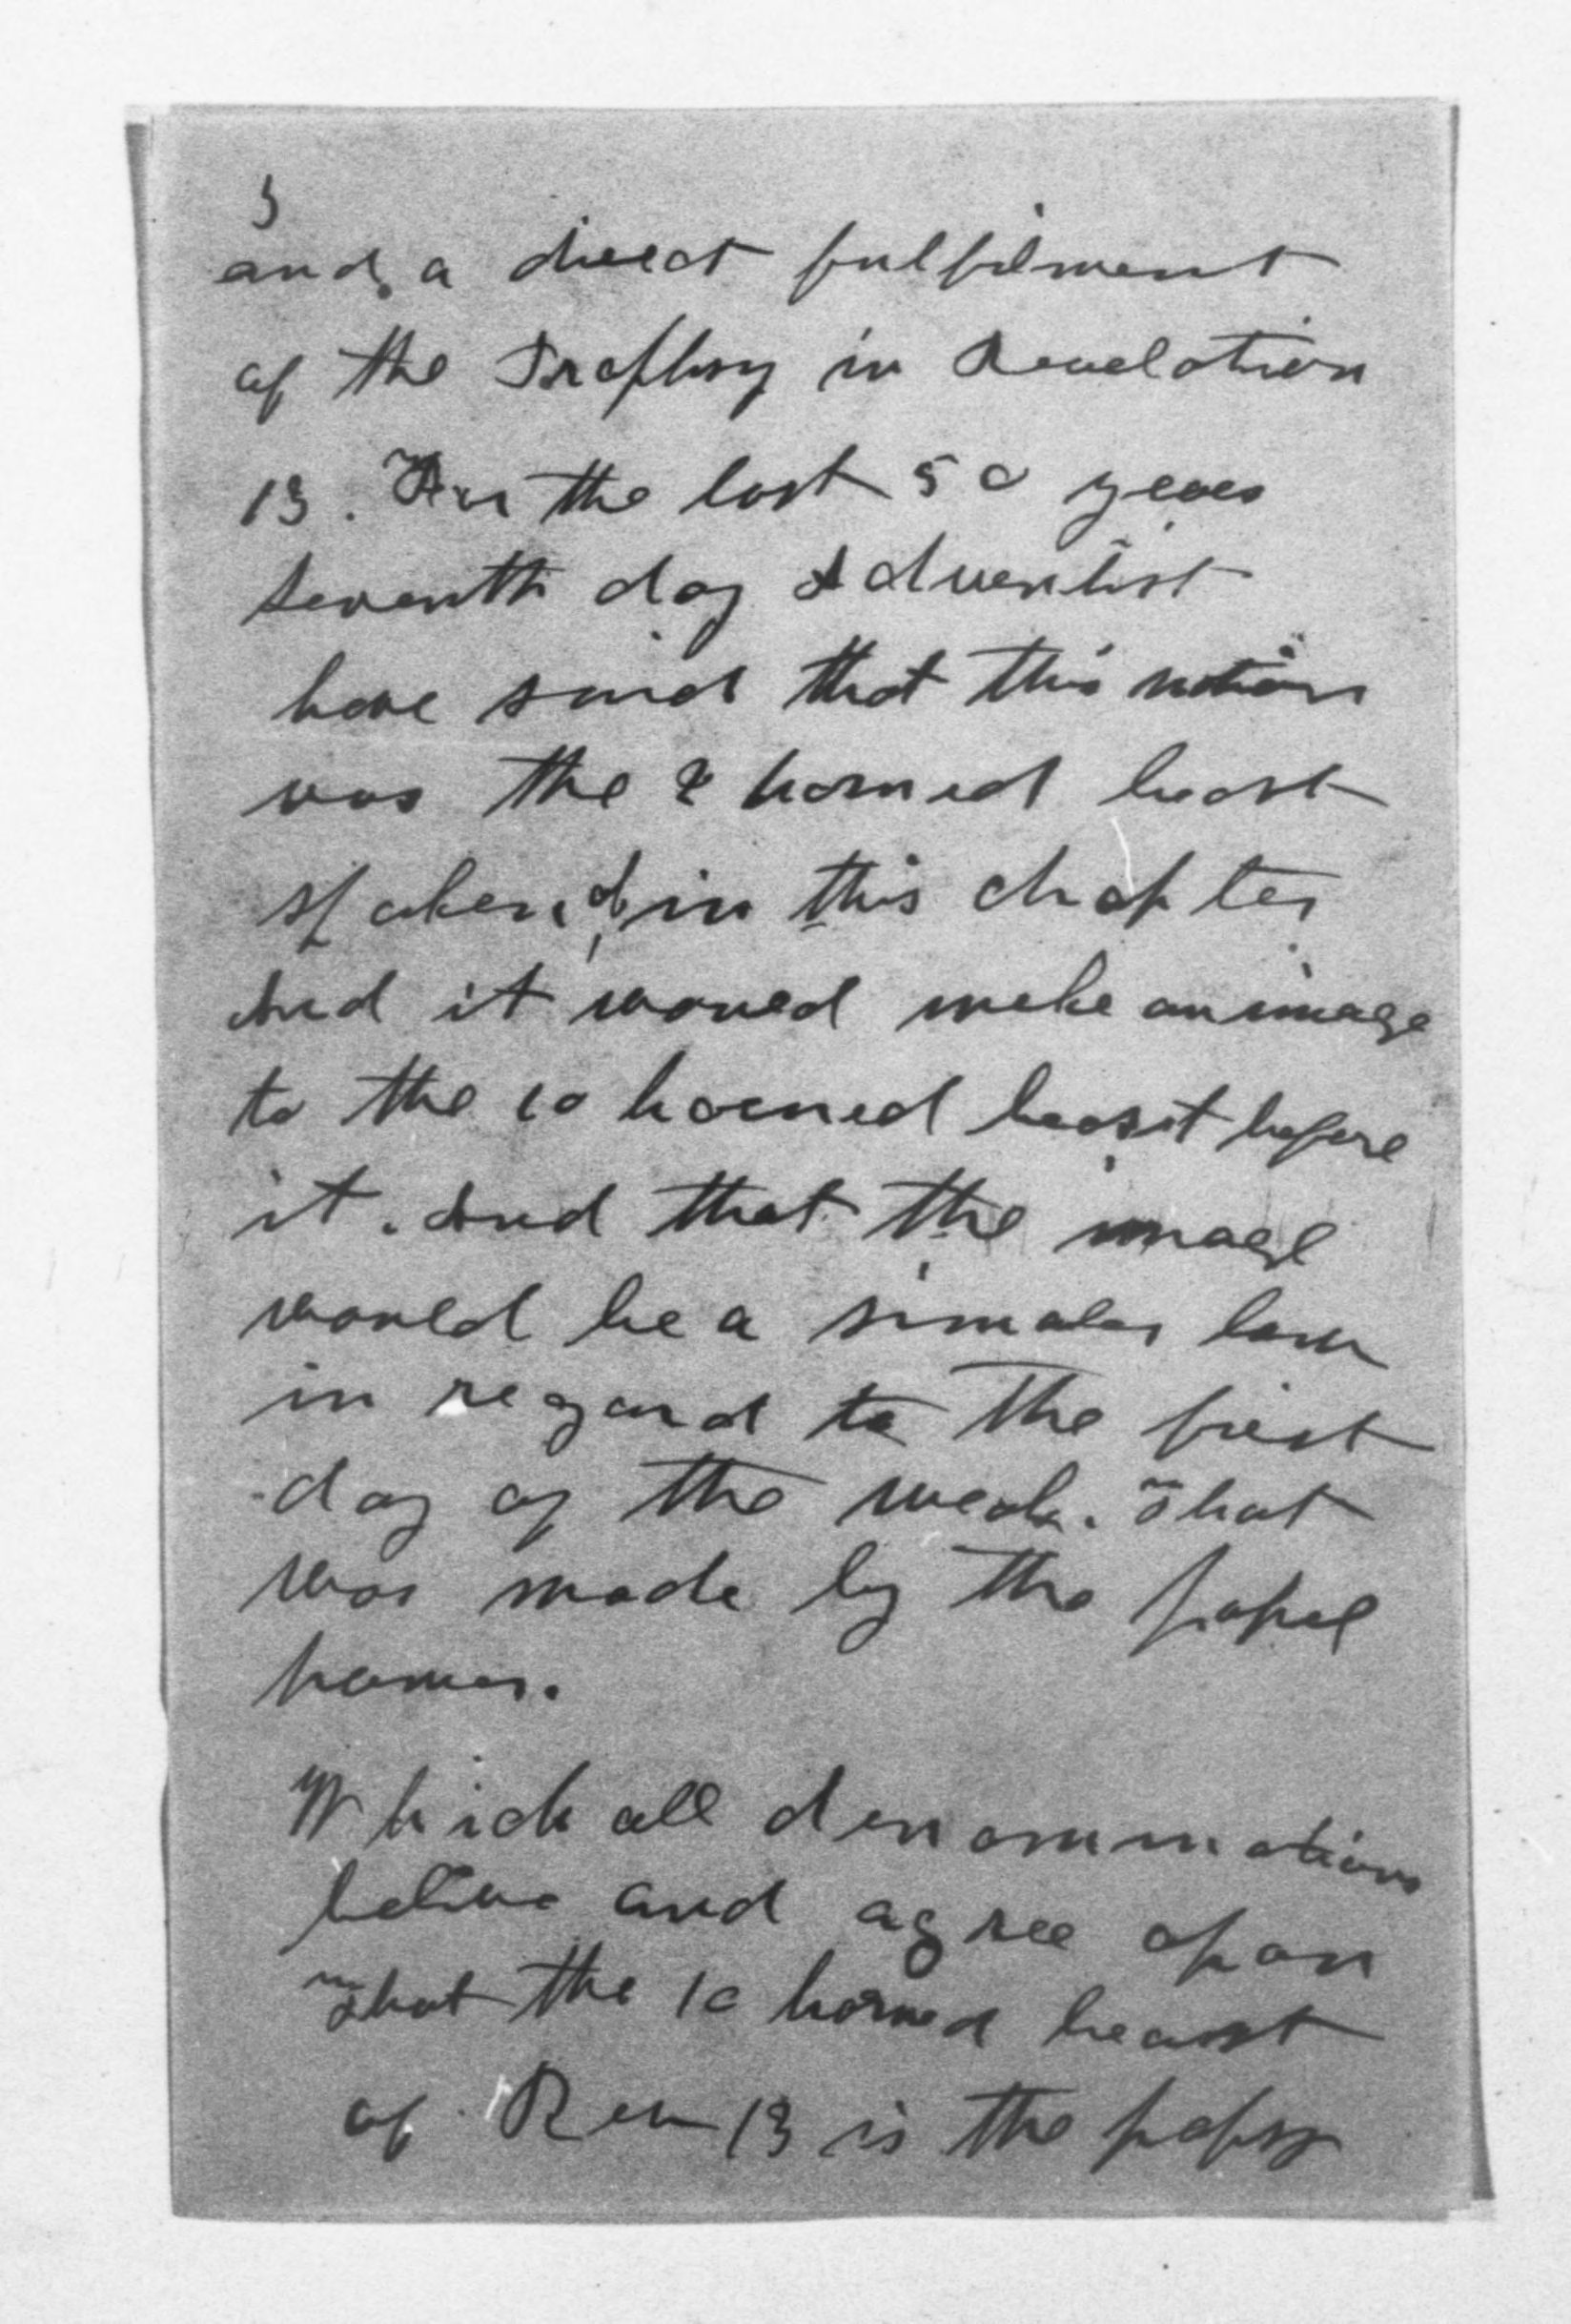 3
and a direct fulfilment
of the Prophsy in Revelation
13. For the last 50 years
seventh day Adventist
have said that this nation
was the 2 horned beast
spoken of in this chapter
And it would make an image
to the 10 horned beast before
it. And that the image
would be a similar law
in regard to the first
day of the week. That
was made by the papal
power.
Which all denominations
believe and agree upon
That the 10 horned beast
of Rev 13 is the papsy